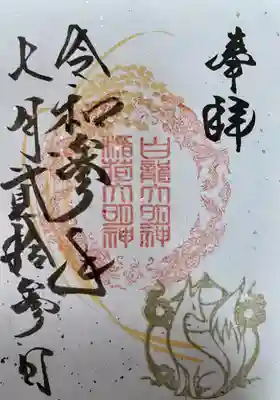 奉拝
白龍大明神
大明神
令和参年
七月貳拾参日